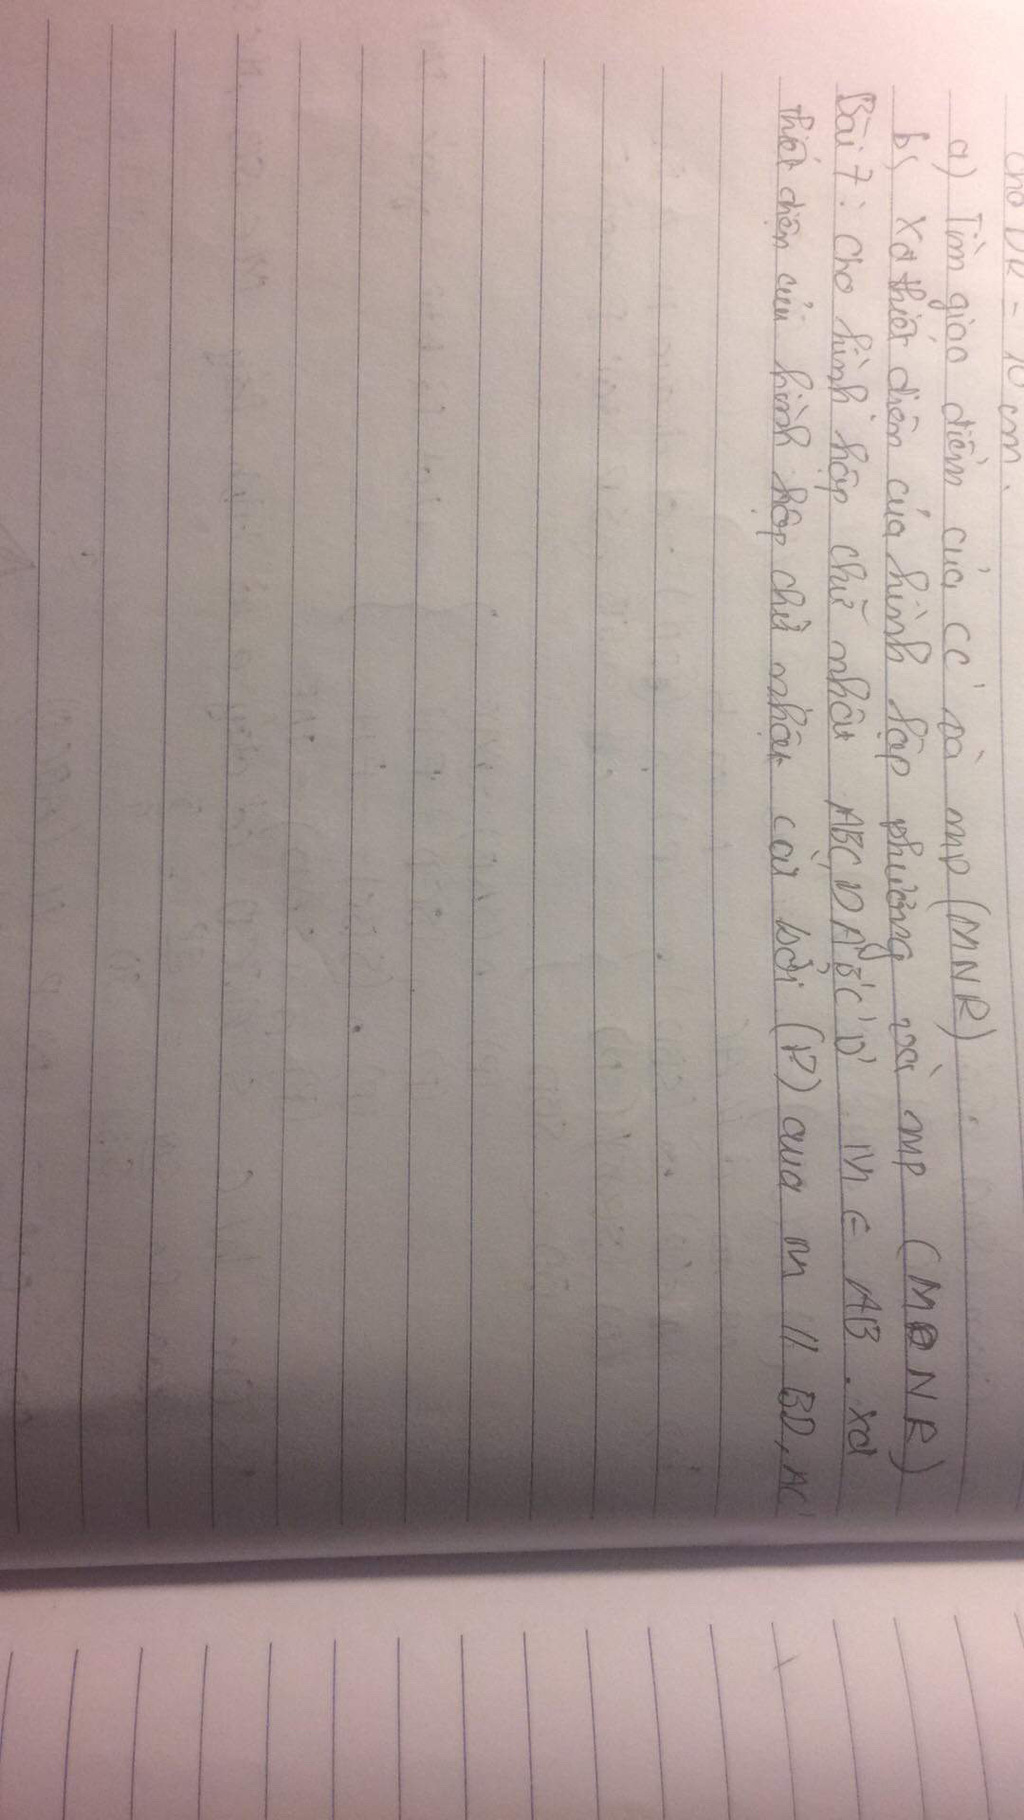 cho DR = 10 cm.
a) Tìm giao điểm của CC' và mp (MNR)
b, Xđ thiết diện của hình lập phương và mp (MNR)
Bài 7: cho hình hộp chữ nhật ABCDA'B'C'D' M ∈ AB. xđ
thiết diện của hình hộp chữ nhật cắt bởi (P) qua M // BD, AC'